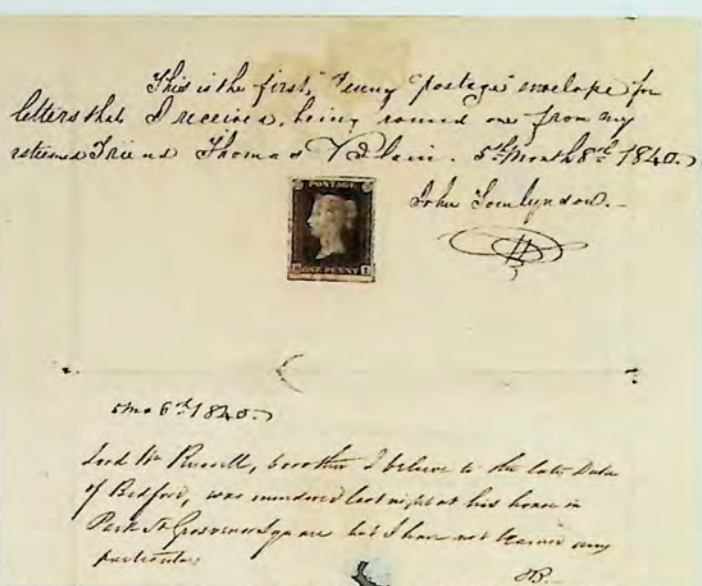 This is the first, "Penny Postage" envelope for
letters that I received, being round one from my
esteemed Friend Thomas 5th Month 8th 1840.
John Tomlynson.
POSTAGE
ONE PENNY
5mo 6th 1840.
Lord Wm Russell, brother I believe to the late Duke
of Bedford, was murdered last night at his house in
Park St Grosvenor Square but I have not learned any
particulars